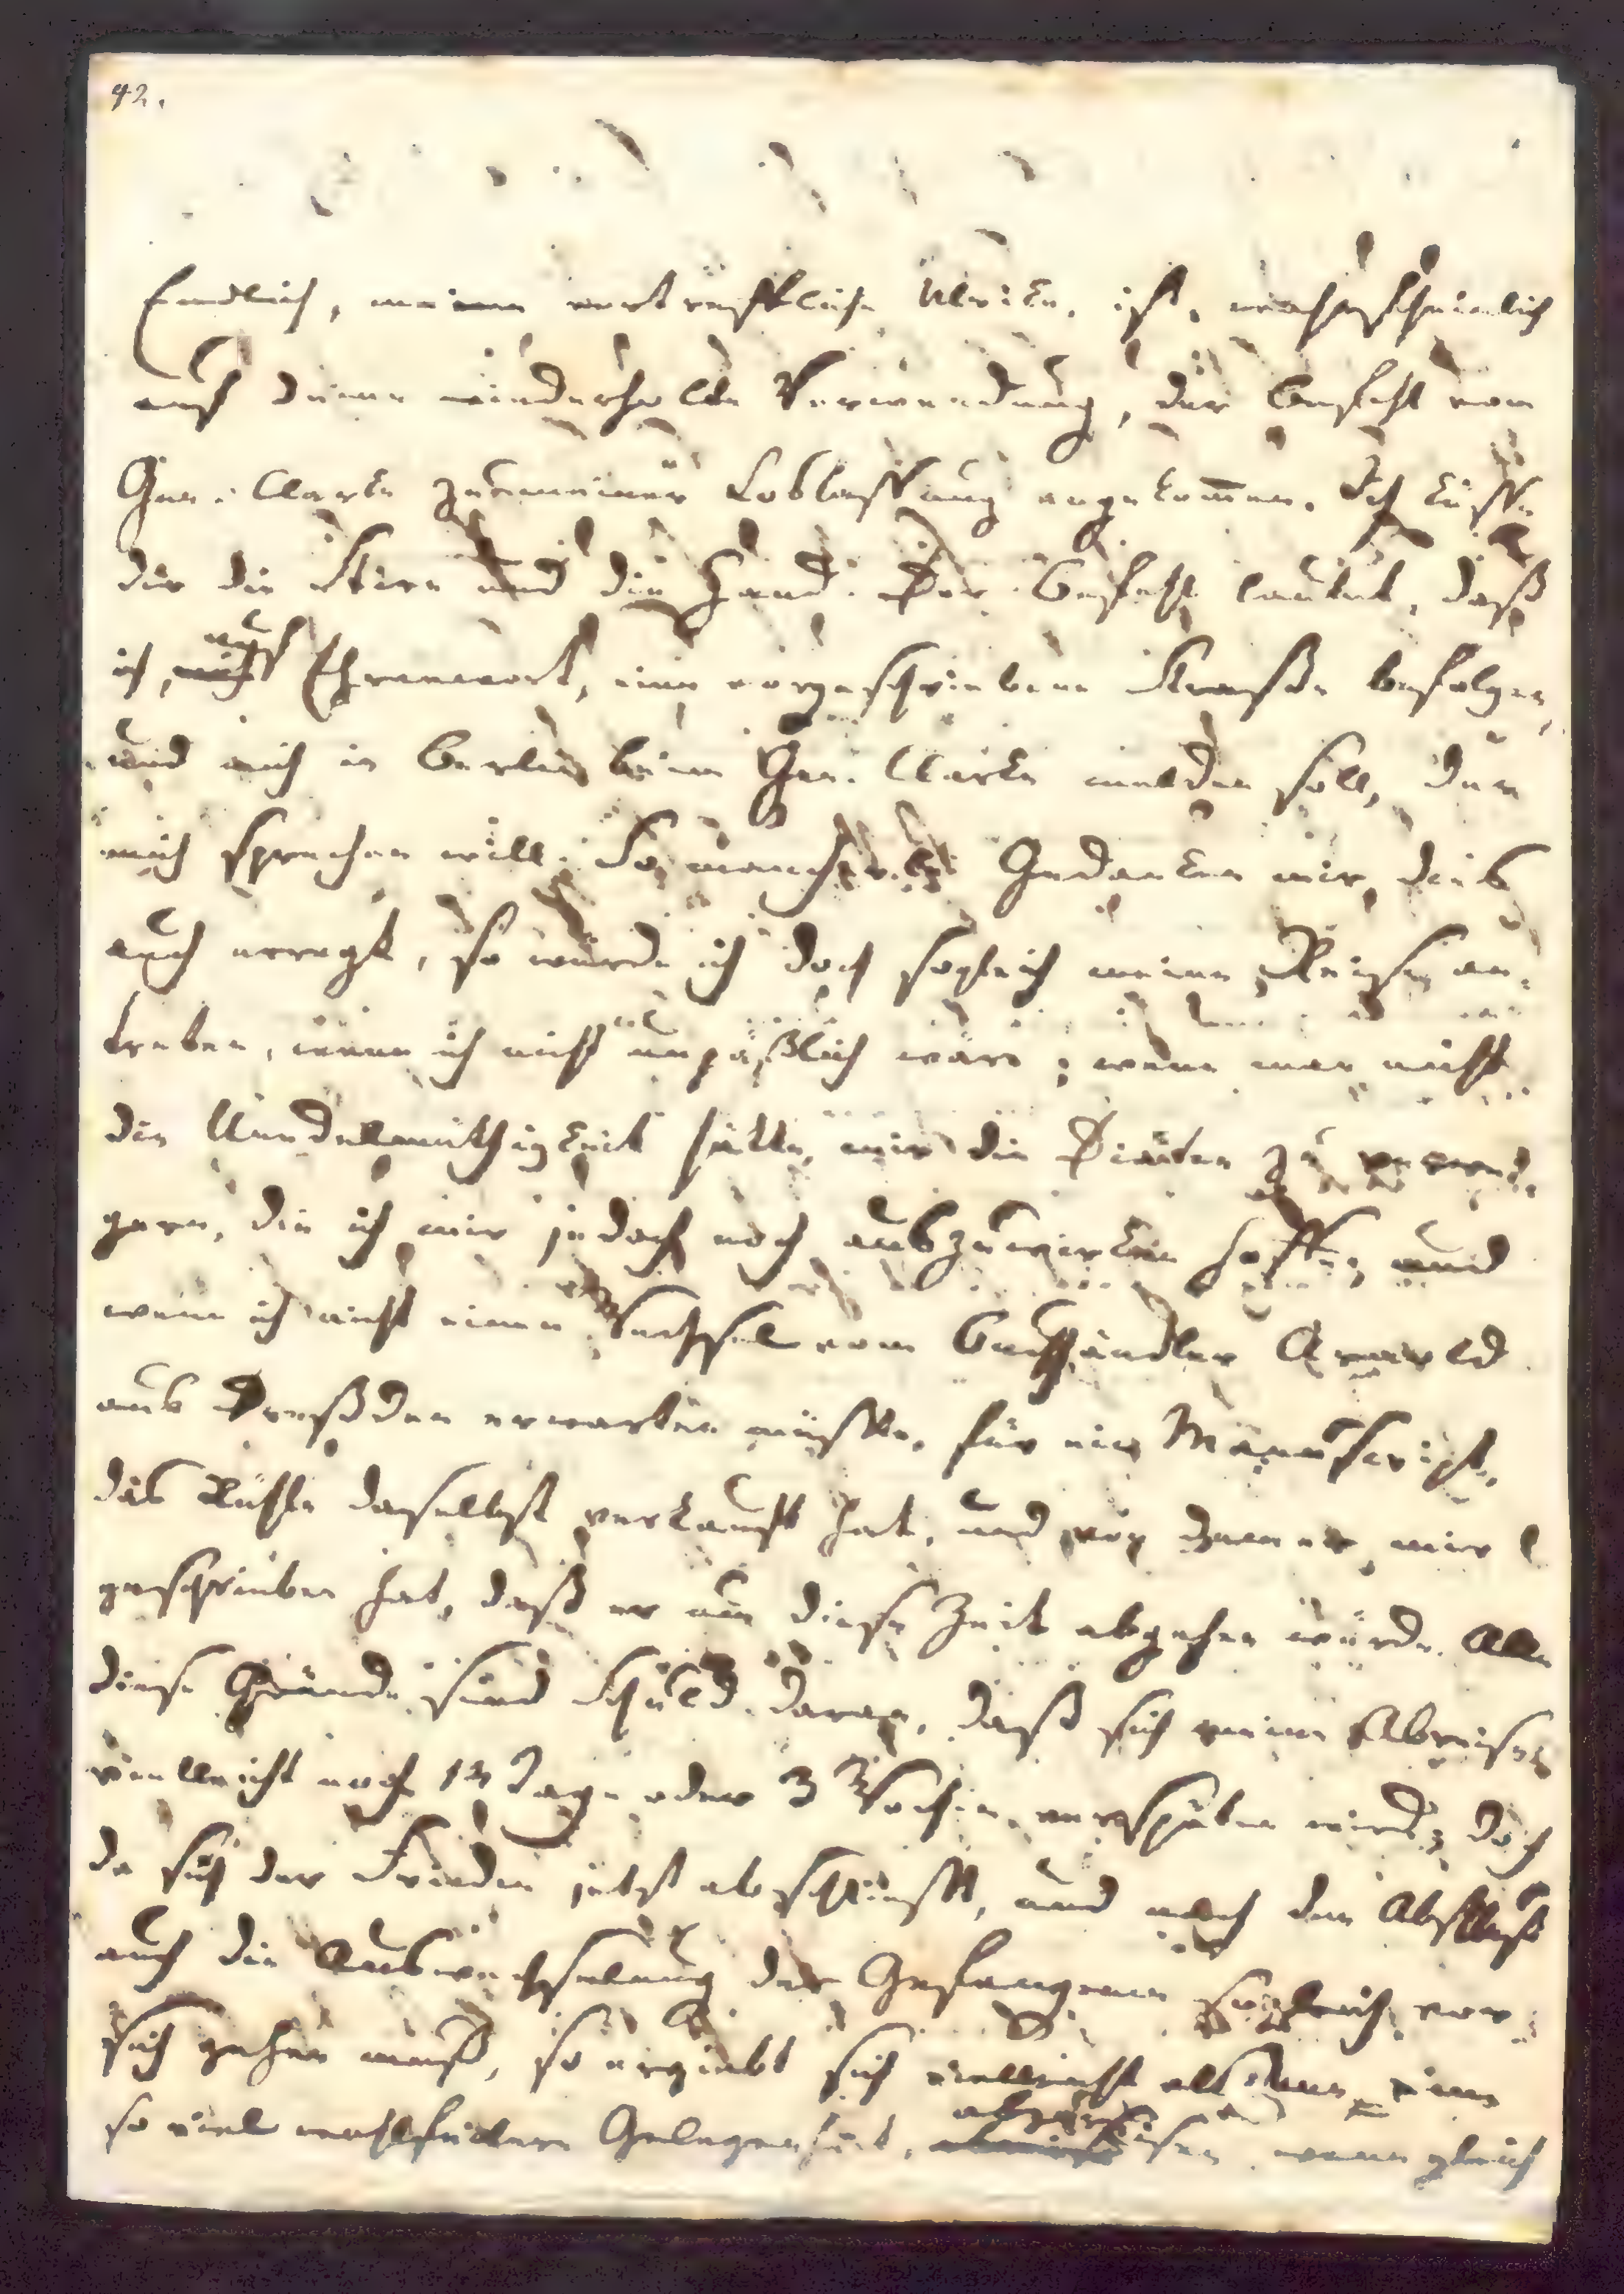 42.
Endlich, meine vortreffliche Ulrike, ist, wahrscheinlich
auf deine wiederholte Verwendung, der Befehl vom
Gen: Clarke zu meiner Loslassung angekom̅en. Ich küsse
dir die Stirn und die Hand. Der Befehl lautet, daß
ich, auf Ehrenwort, eine vorgeschriebene Straße befolgen,
und mich in Berlin beim Gen: Clarke melden soll, der
mich sprechen will. So mancherlei Gedanken mir dies
auch erregt, so würde ich doch sogleich meine Reise an-
treten, wenn ich nicht unpäßlich wäre; wenn man nicht
die Unedelmüthigkeit hätte, mir die Diäten zu verwei-
gern, die ich mir jedoch noch auszuwirken hoffe; und
wenn ich nicht einen Wechsel vom Buchhändler Arnold
aus Dreßden erwarten müßte, für ein Manuscript,
das Rühle daselbst verkauft hat, und von dem er mir
geschrieben hat, daß er um diese Zeit abgehen würde. Alle
diese Gründe sind Schuld daran, daß sich meine Abreise
vielleicht noch 14 Tage oder 3 Wochen verspäten wird; doch
da sich der Frieden jetzt abschließt, und nach dem Abschluß
auch die Auswechselung der Gefangenen sogleich vor
sich gehen muß, so ergiebt sich vielleicht alsdann eine
so viel wohlfeilere Gelegenheit, abzureisen, wenn gleich